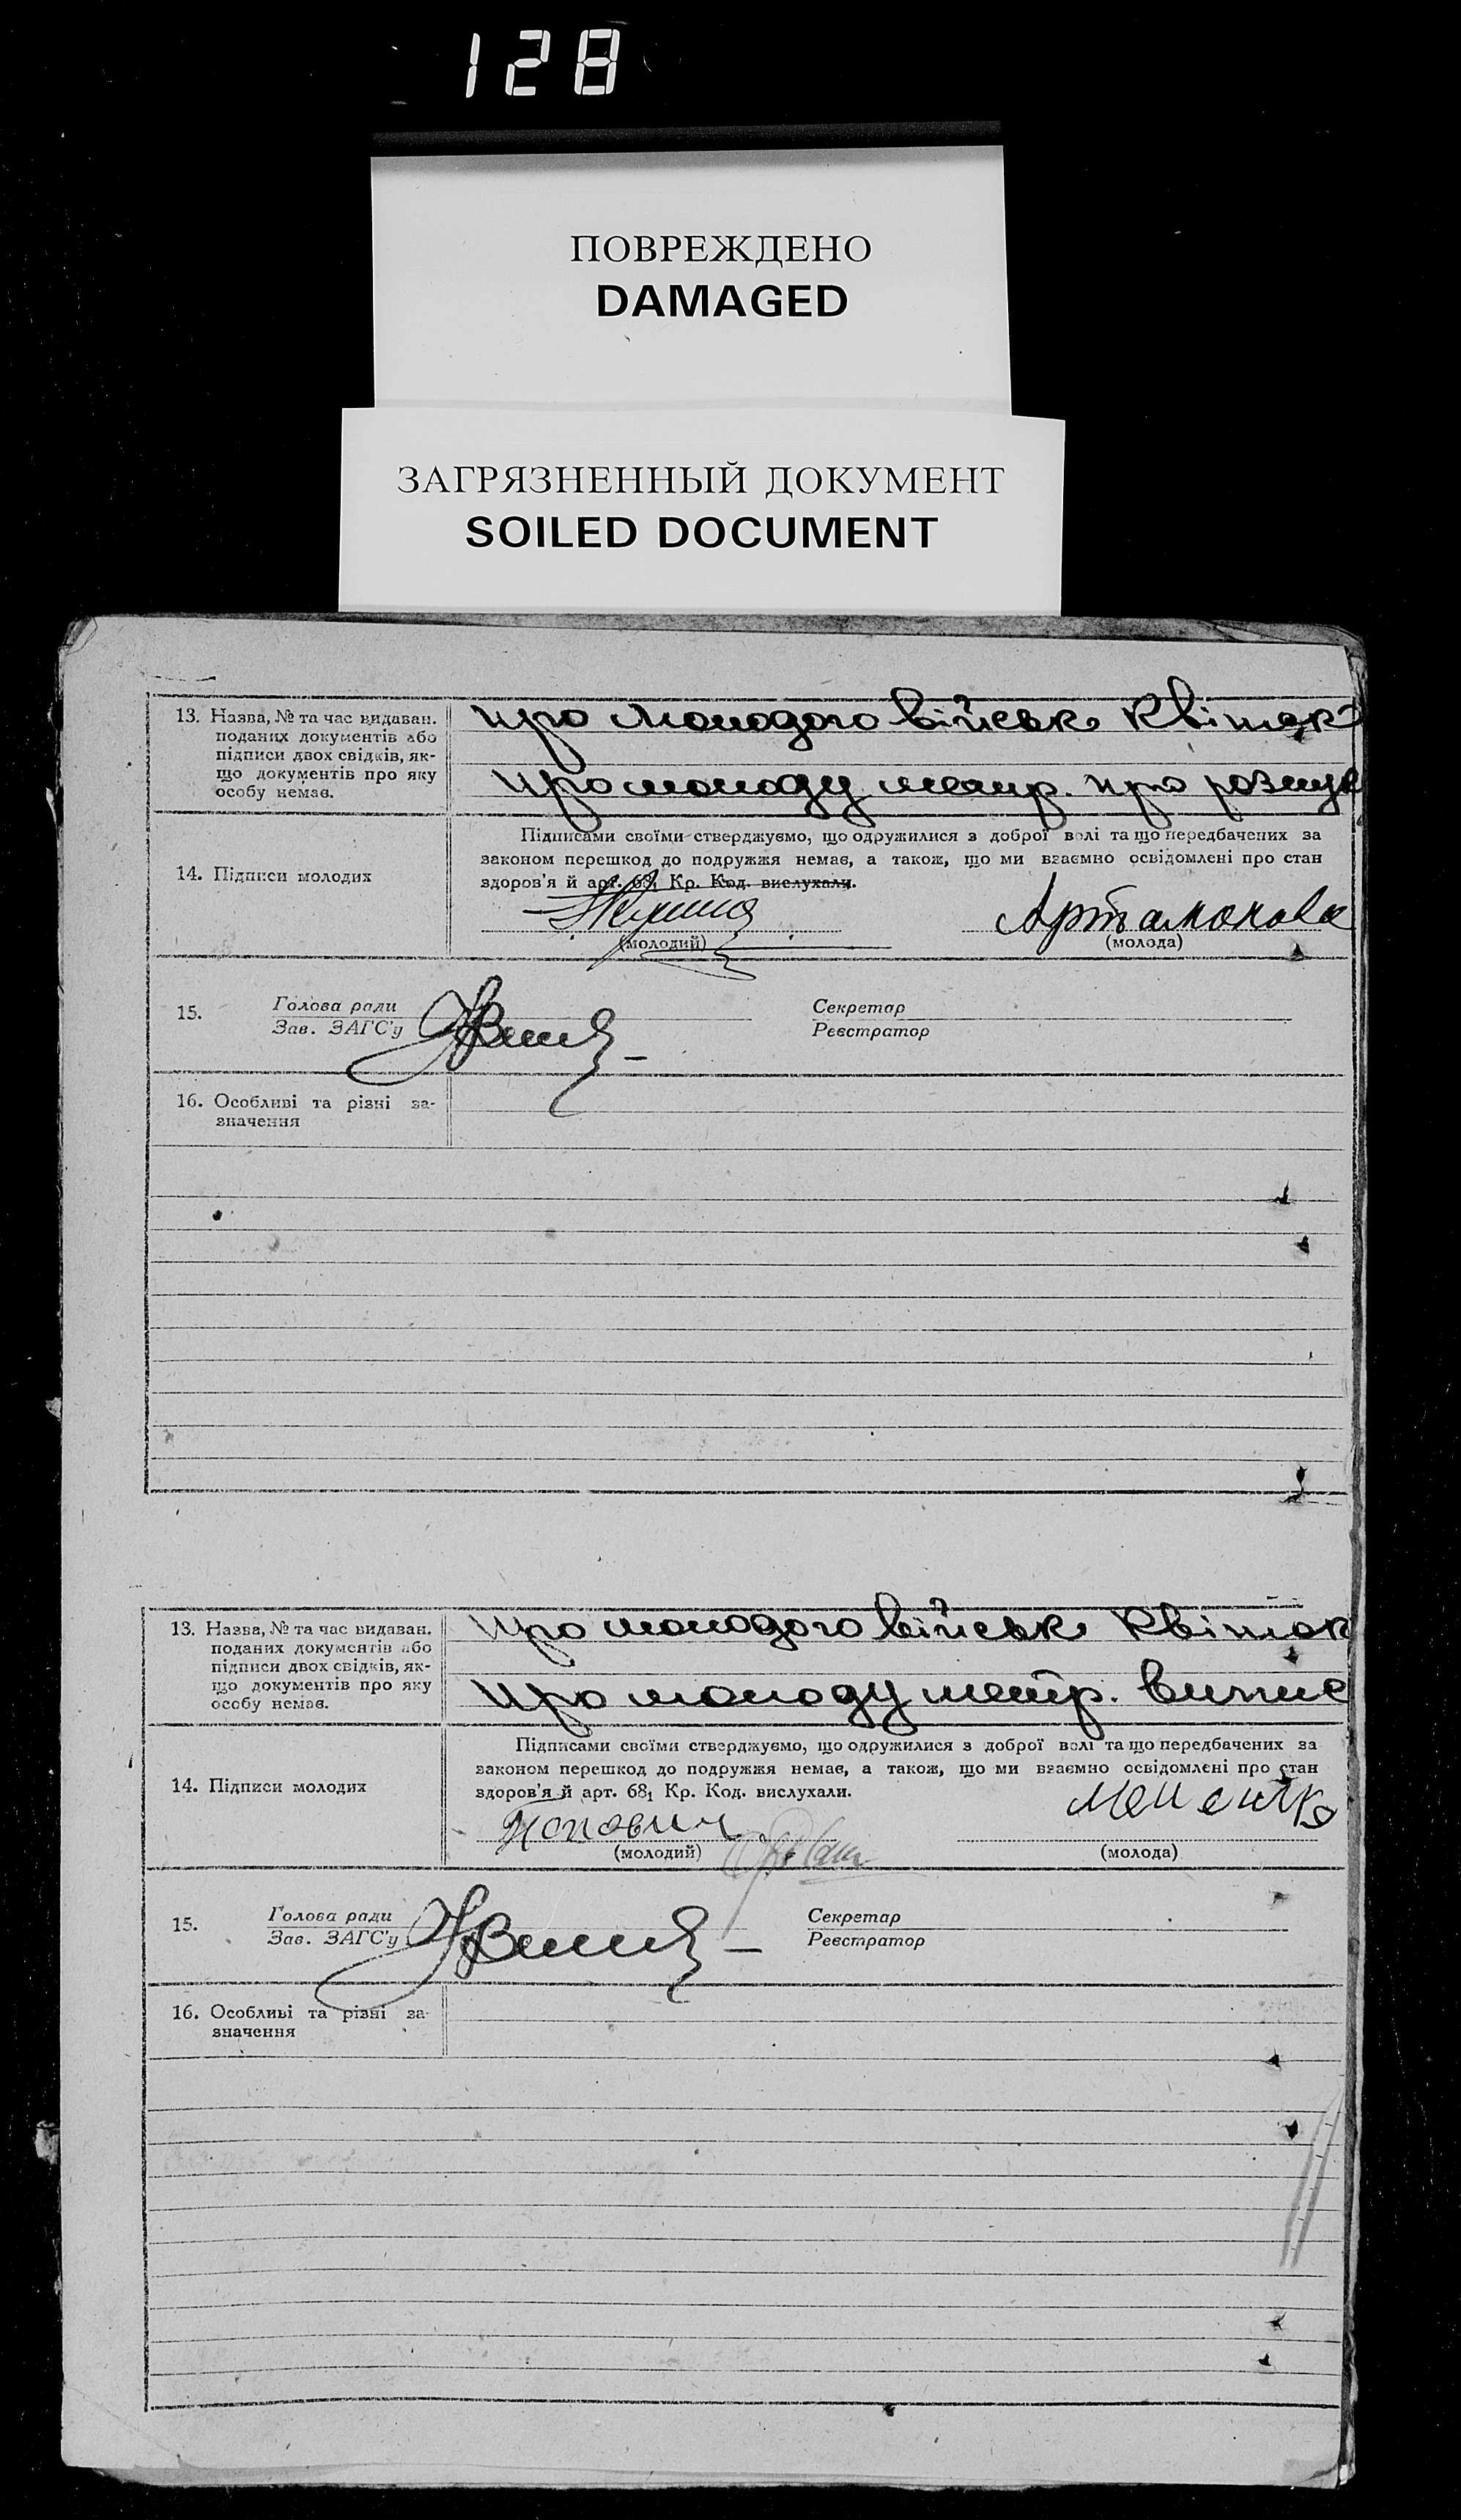 128
ПОВРЕЖДЕНО
DAMAGED
ЗАГРЯЗНЕННЫЙ ДОКУМЕНТ
SOILED DOCUMENT
13. Назва, № та час видаван.
поданих документів або
підписи двох свідків, як-
що документів про яку
особу немає.
про молодого військ квіток
про молоду метр. про розлук
14. Підписи молодих
Підписами своїми стверджуємо, що одружилися з доброї волі та що передбачених за
законом перешкод до подружжя немає, а також, що ми взаємно освідомлені про стан
здоров'я й арт. 68₁ Кр. Код. вислухали.
Артамонова
(молодий) (молода)
15. Голова ради Секретар
Зав. ЗАГС'у Реєстратор
16. Особливі та різні за-
значення
13. Назва, № та час видаван.
поданих документів або
підписи двох свідків, як-
що документів про яку
особу немає.
Про молодого військ квіток
Про молоду метр. випис
14. Підписи молодих
Підписами своїми стверджуємо, що одружилися з доброї волі та що передбачених за
законом перешкод до подружжя немає, а також, що ми взаємно освідомлені про стан
здоров'я й арт. 68₁ Кр. Код. вислухали.
Попович
(молодий) (молода)
15. Голова ради Секретар
Зав. ЗАГС'у Реєстратор
16. Особливі та різні за-
значення